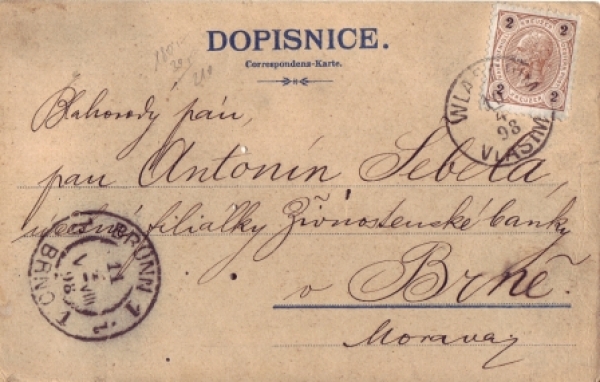 DOPISNICE.
Correspondenz-Karte.
2 KREUZER 2
2 KREUZER 2
WLASCHIM
4
98
VLAŠIM
Blahorodý pán,
pan Antonín Šebela,
účetní filiálky Živnostenské banky
v Brně.
Moravay
BRÜNN 1
11
VIII
98
BRNO